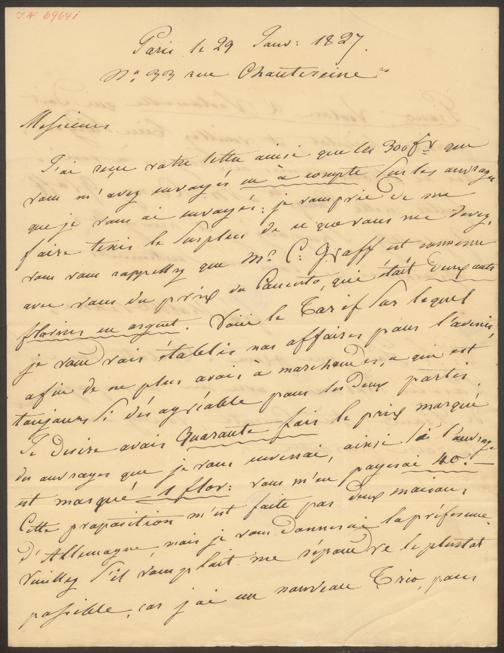 I.N 69641
Paris le 29 Janv: 1827.
No 33 rue Chantereine
Messieurs
J'ai reçu votre lettre ainsi que les 300 fr que
vous m'avez envoyés en à compte sur les ouvrages
que je vous ai envoyés; je vous prie de me
faire tenir le surplus de ce que vous me devez,
vous vous rappellez que Mr C: Graff est convenu
avec vous du prix du Concerto, qui était deux cents
florins en argent. Voici le Tarif sur lequel
je voudrais établir nos affaires pour l'avenir,
afin de ne plus avoir à marchander, ce qui est
toujours si désagréable pour les deux partis.
Je desire avoir quarante fois le prix marqué
des ouvrages que je vous enverrai, ainsi si l'ouvrage
est marqué 1 flor: vous m'en payerai 40.—
Cette proposition m'est faite par deux maisons
d'Allemagne, mais je vous donnerai la préférence.
Veuillez s'il vous plait me répondre le plustot
possible, car j'ai un nouveau Trio, pour